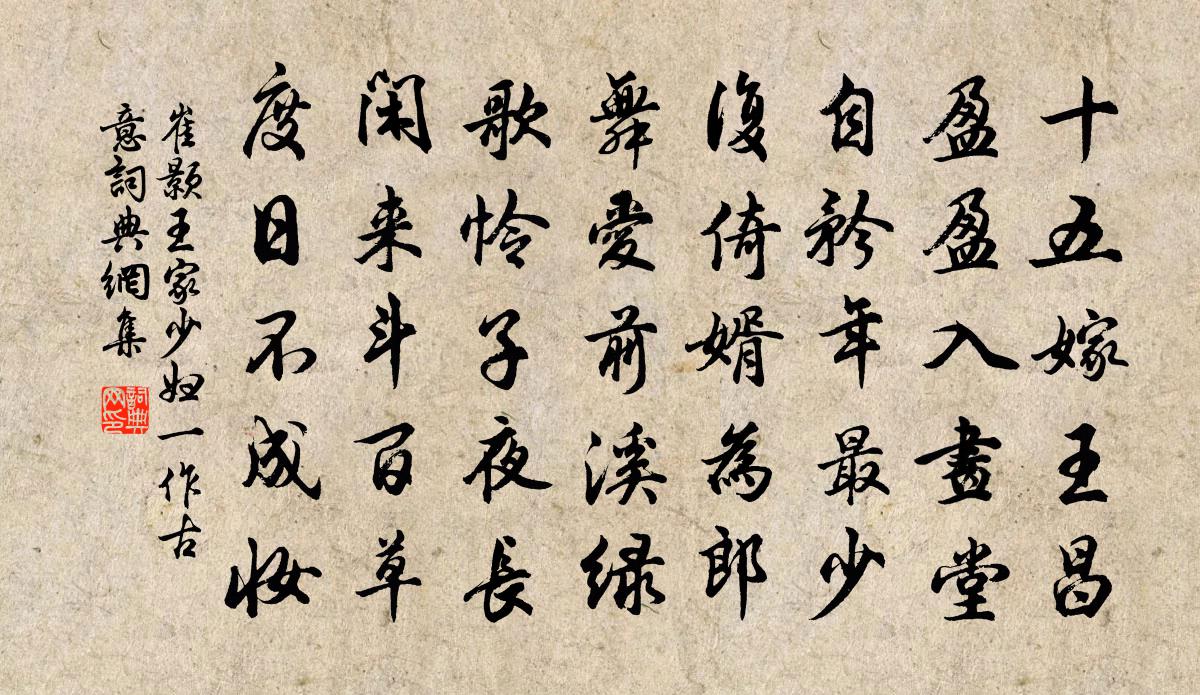 十五嫁王昌
盈盈入畫堂
自矜年最少
復倚婿為郎
舞愛前溪綠
歌怜子夜長
閑来斗百草
度日不成妝
崔颢王家少妇一作古
意詞典網集
詞典
网印